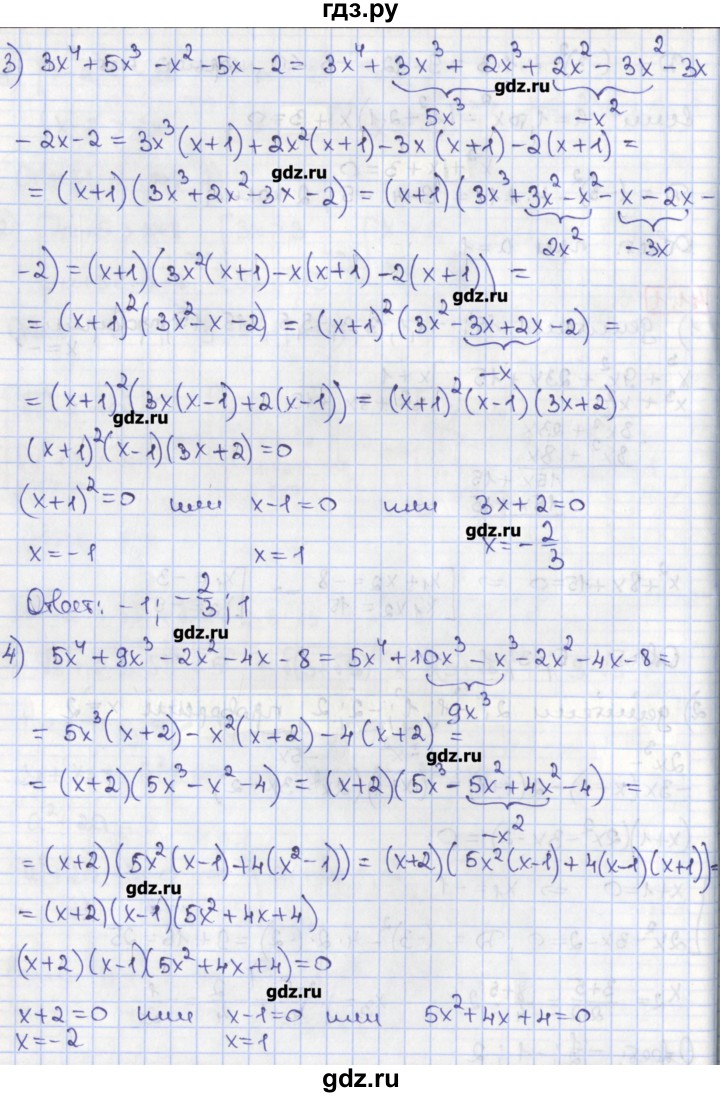 гдз.ру
3) 3x⁴ + 5x³ - x² - 5x - 2 = 3x⁴ + 3x³ + 2x³ + 2x² - 3x² - 3x
gdz.ru
5x³ -x²
- 2x - 2 = 3x³(x+1) + 2x²(x+1) - 3x(x+1) - 2(x+1) =
gdz.ru
= (x+1)(3x³ + 2x² - 3x - 2) = (x+1)(3x³ + 3x² - x² - x - 2x -
2x² -3x
-2) = (x+1)(3x²(x+1) - x(x+1) - 2(x+1)) =
gdz.ru
= (x+1)²(3x² - x - 2) = (x+1)²(3x² - 3x + 2x - 2) =
-x
= (x+1)²(3x(x-1) + 2(x-1)) = (x+1)²(x-1)(3x+2)
gdz.ru
(x+1)²(x-1)(3x+2) = 0
(x+1)² = 0 или x-1 = 0 или 3x+2 = 0
gdz.ru
x = -1 x = 1 x = -2/3
Ответ: -1; -2/3; 1
gdz.ru
4) 5x⁴ + 9x³ - 2x² - 4x - 8 = 5x⁴ + 10x³ - x³ - 2x² - 4x - 8 =
9x³
= 5x³(x+2) - x²(x+2) - 4(x+2) =
gdz.ru
= (x+2)(5x³ - x² - 4) = (x+2)(5x³ - 5x² + 4x² - 4) =
-x²
= (x+2)(5x²(x-1) + 4(x²-1)) = (x+2)(5x²(x-1) + 4(x-1)(x+1)) =
gdz.ru
= (x+2)(x-1)(5x² + 4x + 4)
(x+2)(x-1)(5x² + 4x + 4) = 0
gdz.ru
x+2 = 0 или x-1 = 0 или 5x² + 4x + 4 = 0
x = -2 x = 1
gdz.ru